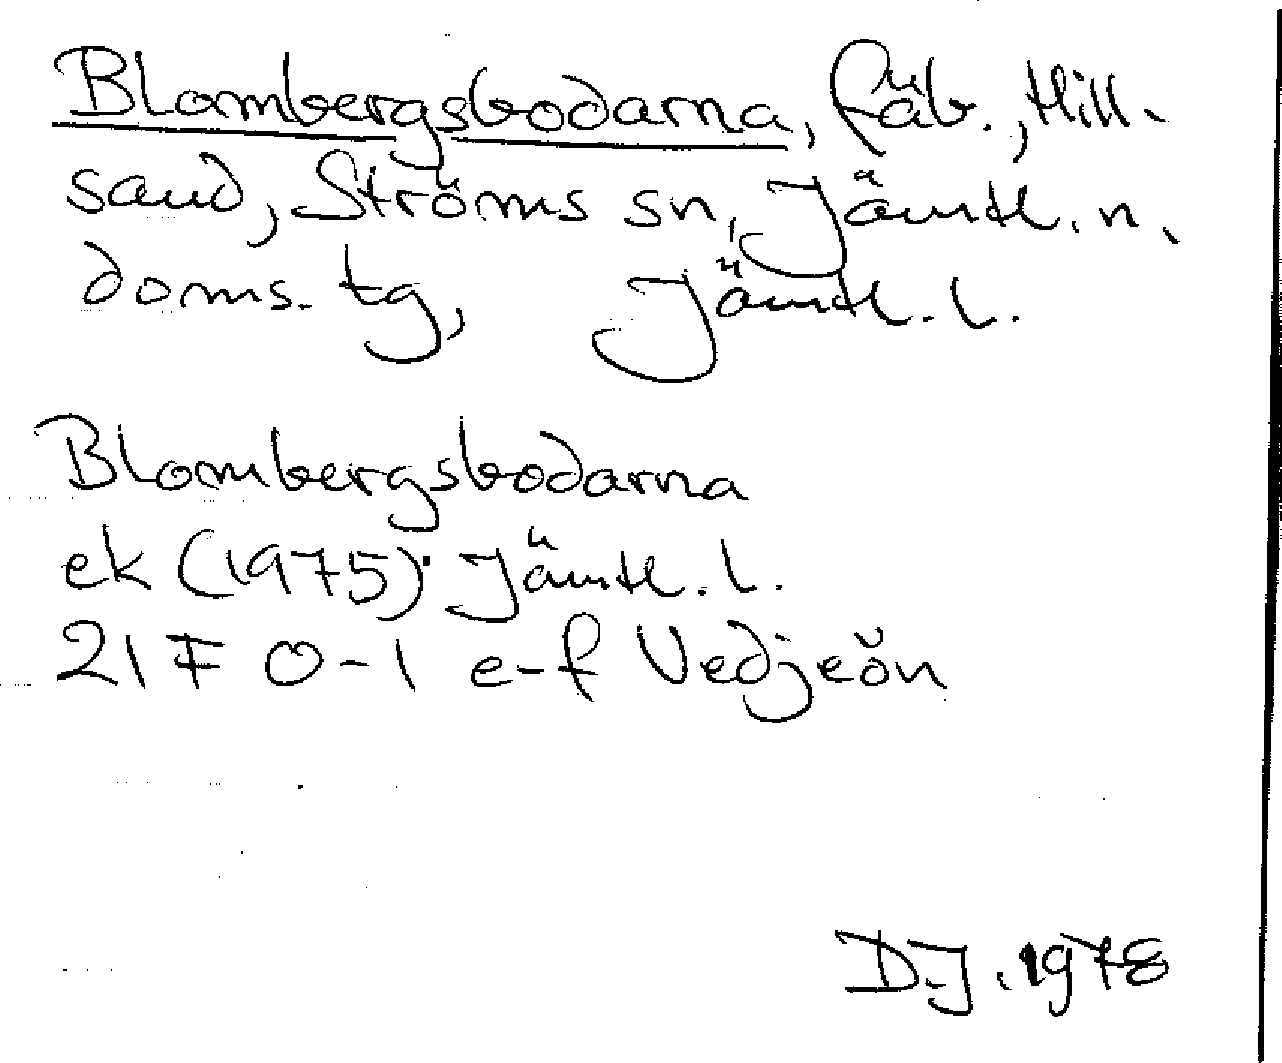 Blombergsbodarna, fäb., Hill-
sand, Ströms sn, Jämtl. n.
doms. tg, Jämtl. l.
Blombergsbodarna
ek (1975): Jämtl. l.
21 F 0-1 e-f Vedjeön
D.J. 1978